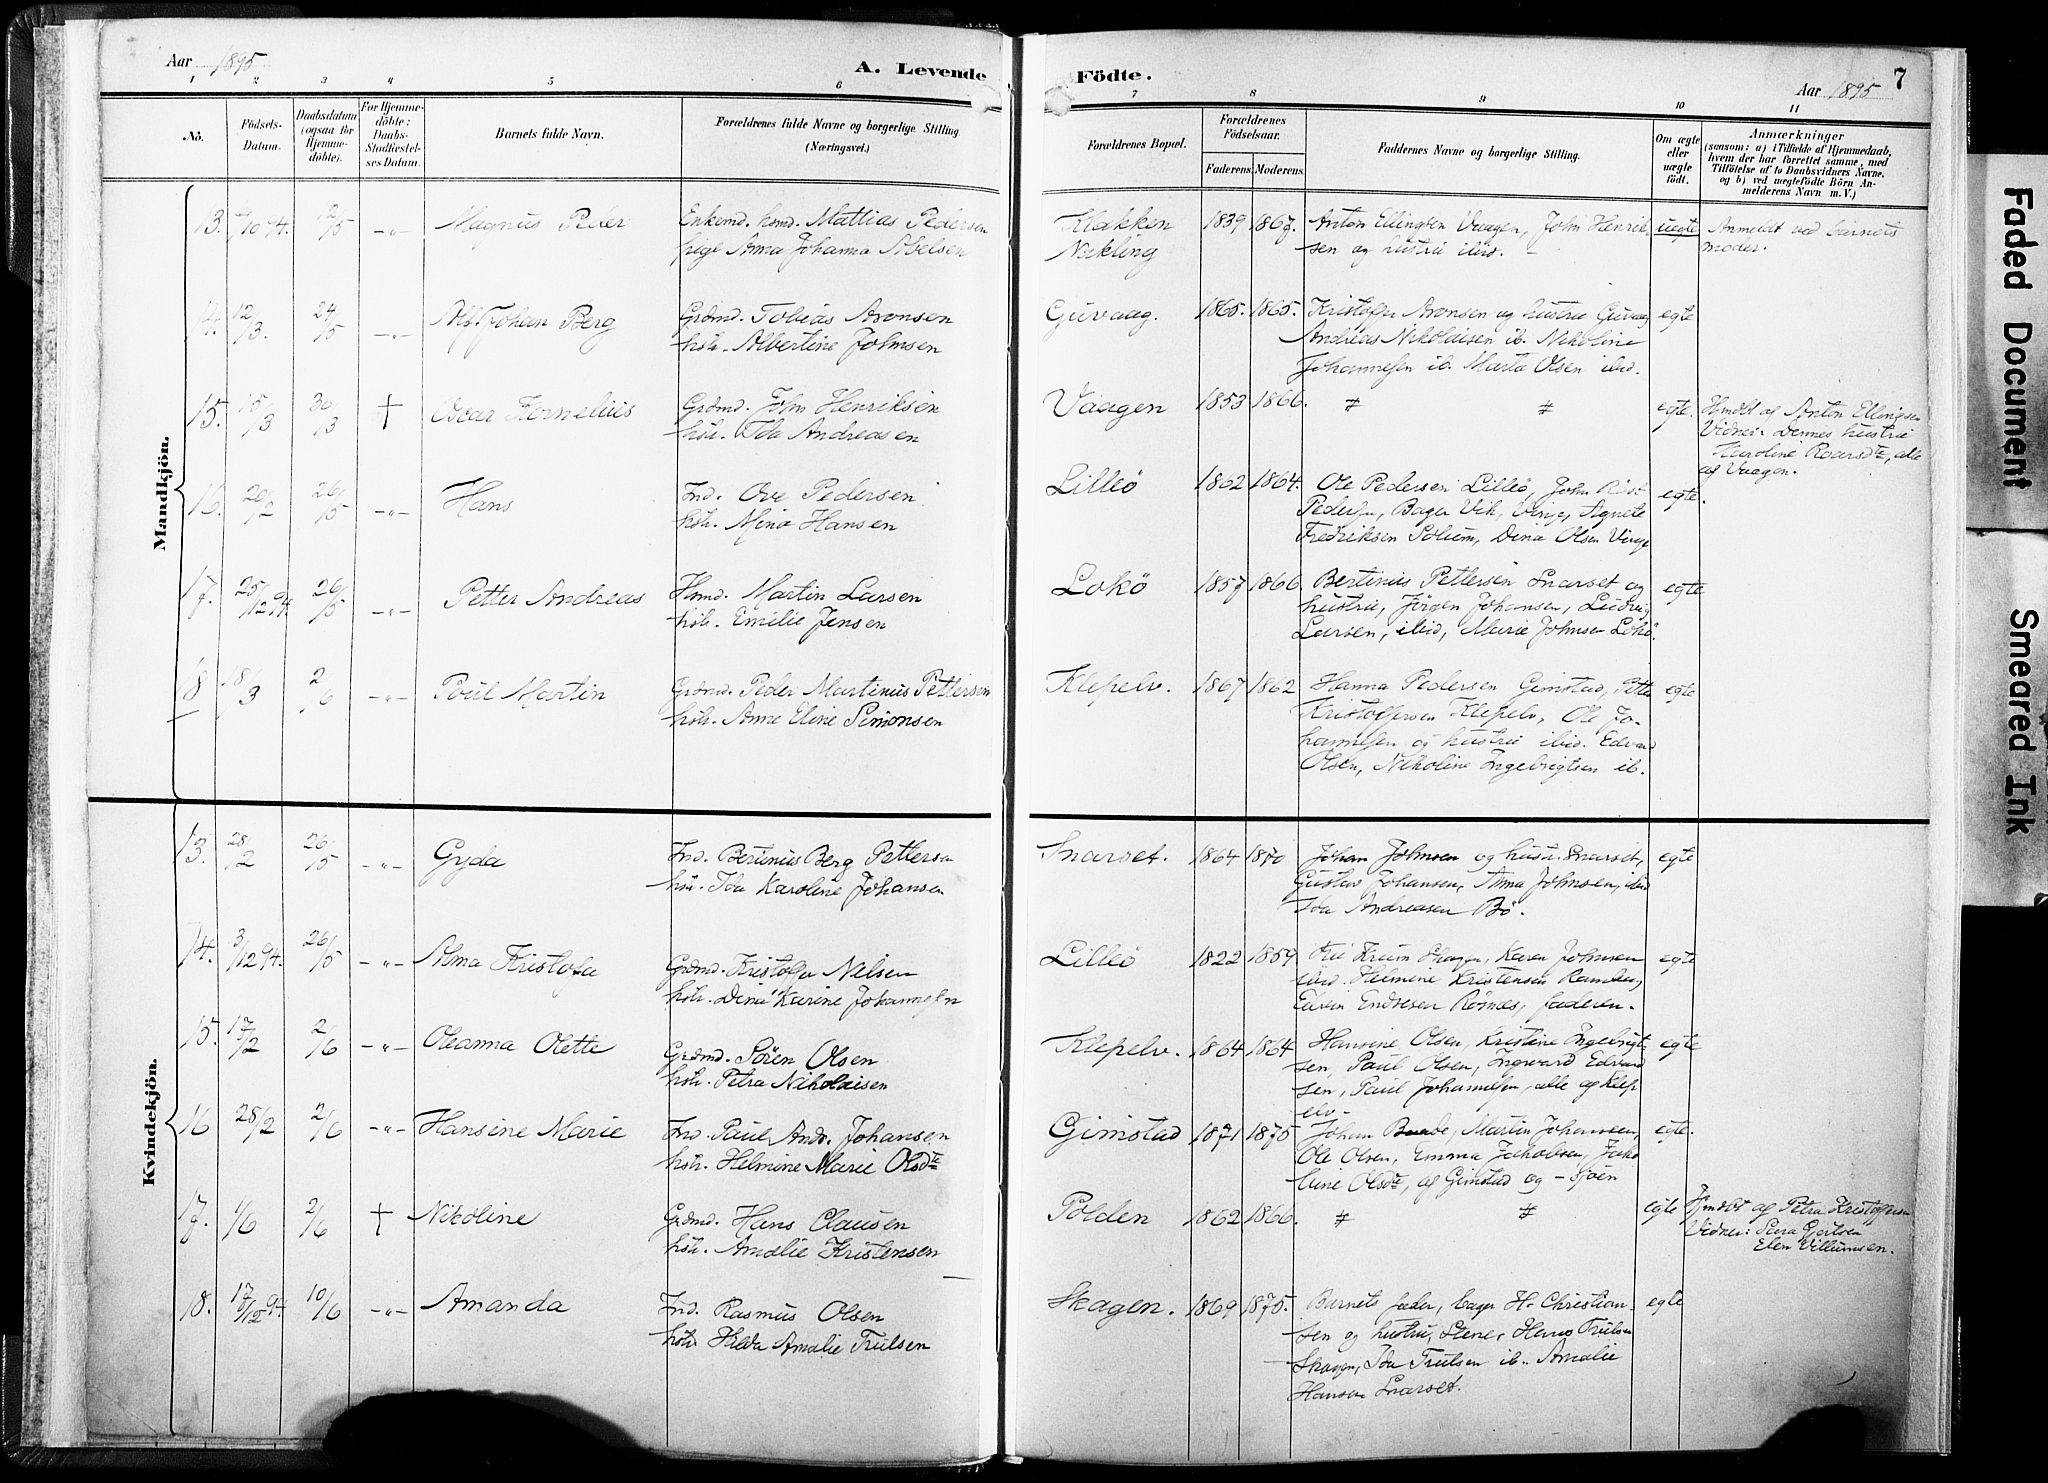 Aar 1895
A. Levende
Födte.
7
Aar 1895
1 2 3 4 5 6 7 8 9 10 11
No.
Födsels-
Datum.
Daabsdatum
(ogsaa for
Hjemme-
döbte).
For Hjemme-
döbte:
Daabs-
Stadfæstel-
ses Datum.
Barnets fulde Navn.
Forældrenes fulde Navne og borgerlige Stilling
(Næringsvei.)
Forældrenes Bopæl.
Forældrenes
Födselsaar.
Faderens Moderens
Faddernes Navne og borgerlige Stilling.
Om ægte
eller
uægte
födt.
Anmærkninger
(saasom: a) i Tilfælde af Hjemmedaab,
hvem der har forrettet samme, med
Tilföielse af to Daabsvidners Navne.
og b) ved uægtefödte Börn An-
melderens Navn m. V.)
Mandkjön.
13. /10 94. 12/5 -„- Magnus Peder
Enkemd. hsmd. Mattias Pedersen
pige Anna Johanna Abelsen
Klakken
Nykling
1839 1867.
Anton Ellingsen Vaagen, John Henrik-
sen og hustru ibid.
uegte
Anmeldt ved barnets
moder.
14. 12/3. 24/5 -„- Alf Johan Berg
Grdmd. Tobias Aronsen
hstr. Albertine Johnsen
Guvaag. 1865. 1865.
Kristoffer Aronsen og hustru Guvaag
Andreas Nikolaisen ib. Nikoline
Johannesen ib. Marta Olsen ibid.
egte
15. 15/3 30/3 † Oscar Kornelius
Grdmd. John Henriksen
hstr. Ida Andreasen
Vaagen 1853 1866. # #
egte.
Hjmdbt af Anton Ellingsen
Vidner: Dennes hustru
Karoline Roarsdtr, alle
af Vaagen.
16. 20/2 26/5 -„- Hans
Ind. Ove Pedersen
hstr. Mina Hansen
Lilleö 1862 1864.
Ole Pedersen Lilleö, John
Pedersen, Bager Vik, Vinje, Agnete
Fredriksen Solum, Dina Olsen Vinje
egte.
17. 25/12 94. 26/5 -„- Petter Andreas
Hsmd. Martin Larsen
hstr. Emilie Jensen
Lokö 1857 1866
Bertinius Pettersen Snarset og
hustru, Jörgen Johansen, Ludvig
Larsen, ibid, Marie Johnsen Lokö.
egte.
18 18/3 2/6 -„- Poul Martin
Grdmd. Peder Martinus Pettersen
hstr. Anne Eline Simonsen
Klepelv. 1867 1862
Hanna Pedersen Gimstad, Petter
Kristoffersen Klepelv, Ole Jo-
hannesen og hustru ibid. Edvard
Olsen, Nikoline Ingebrigtsen ib.
egte
Kvindekjön.
13. 28/2 26/5 -„- Gyda
Ind. Bertinius Berg Pettersen
hstr. Ida Karoline Johansen
Snarset. 1864 1870
Johan Johnsen og hustr. Snarset,
Gustav Johansen, Anna Johnsen, ibid
Ida Andreasen Bö.
egte
14. 3/12 94. 26/5 -„- Alma Kristofa
Grdmd. Kristoffer Nilsen
hstr. Dina Karine Johannesen
Lilleö 1822 1859
Skagen, Karen Johnsen
ibid. Helmine Kristensen
Edvin Endresen Røsnæs, faderen.
egte
15. 17/2 2/6 -„- Oleanna Olette
Grdmd. Sören Olsen
hstr. Petra Nikolaisen
Klepelv. 1864 1864
Hansine Olsen, Kristine Ingebrigt-
sen, Paul Olsen, Ingvard Edvard
sen, Paul Johannesen, alle af Klep
elv.
egte
16 28/2 2/6 -„- Hansine Marie
Ind. Paul Andr. Johansen
hstr. Helmine Marie Olsdtr
Gimstad 1871 1875
Johan Martin Johannsen,
Ole Olsen, Emma Jakobsen, Jako
bine Olsdtr, af Gimstad og -sjøen
egte.
17. 1/6 2/6 † Nikoline
Grdmd. Hans Clausen
hstr. Amalie Kristensen
Polden 1862 1866. # #
egte
Hjmdbt af Petra Kristoffersen
Vidner:
Elen Villumsen.
18. 17/12 94. 10/6 -„- Amanda
Ind. Rasmus Olsen
hstr Hilda Amalie Trulsen
Skagen. 1869 1875.
Barnets fader, bager H. Christian-
sen og hustru, Steine, Hans Trulsen
Skagen, Ida Trulsen ib. Amalie
Hansen Snarset.
egte
Faded Document
Smeared Ink